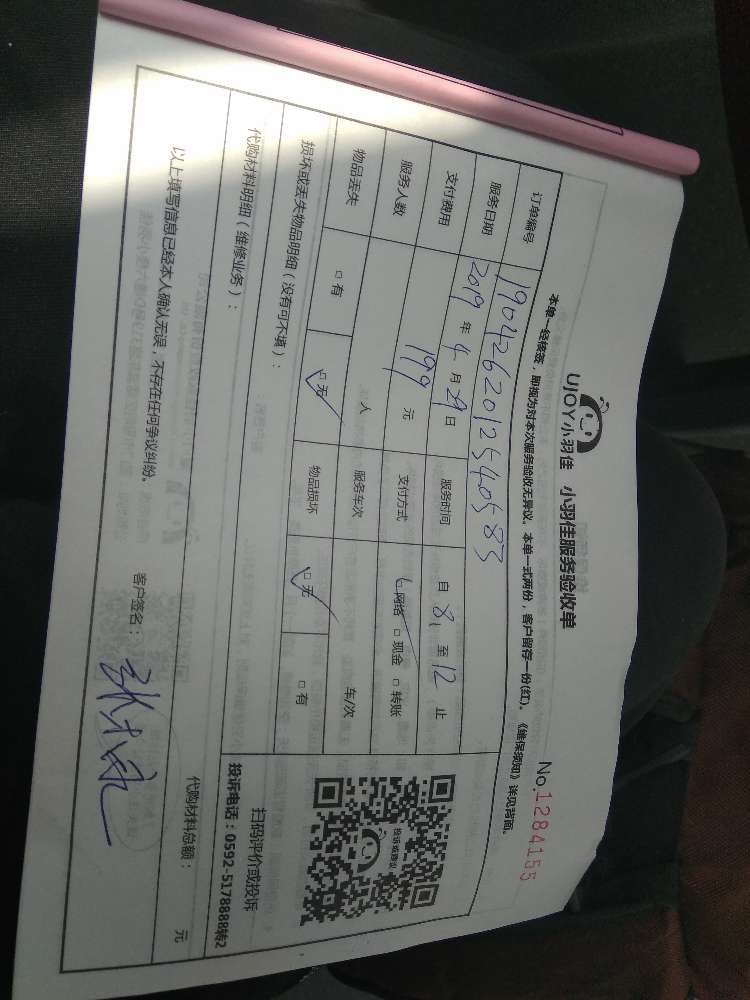 UJOY小羽佳 小羽佳服务验收单
No.1284155
本单一经核签，即视为对本次服务验收无异议。本单一式两份，客户留存一份(红)。《维保须知》详见背面。
订单编号 1904262012540583
服务日期 2019 年 4 月 29 日 服务时间 自 8 至 12 止
支付费用 199 元 支付方式 网络 □ 现金 □ 转账
服务人数 人 服务车次 车/次
物品丢失 □ 有 □ 无 物品损坏 □ 无 □ 有
损坏或丢失物品明细（没有可不填）：
代购材料明细（维修业务）：
投诉或建议
扫码评价或投诉
投诉电话：0592-5178888转2
代购材料总额： 元
以上填写信息已经本人确认无误，不存在任何争议纠纷。 客户签名：